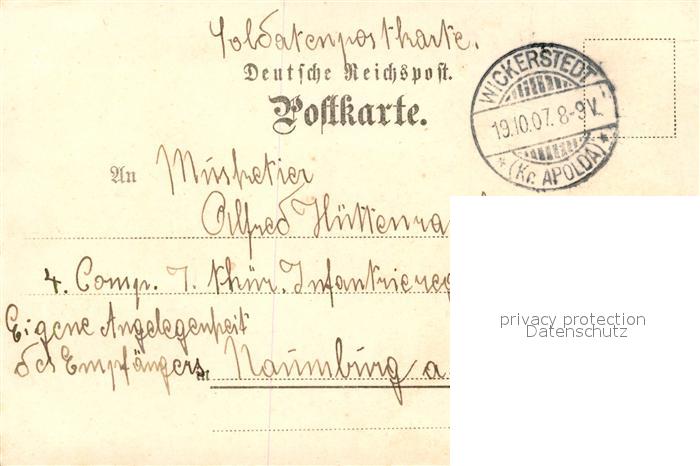 Soldatenpostkarte.
Deutsche Reichspost.
Postkarte.
WICKERSTEDT
19.10.07. 8-9V.
* (Kr. APOLDA) *
An Musketier
Alfred Hüttenra
4. Comp. 7. thür. Infantriereg
Eigene Angelegenheit
des Empfängers
in Naumburg a
privacy protection
Datenschutz